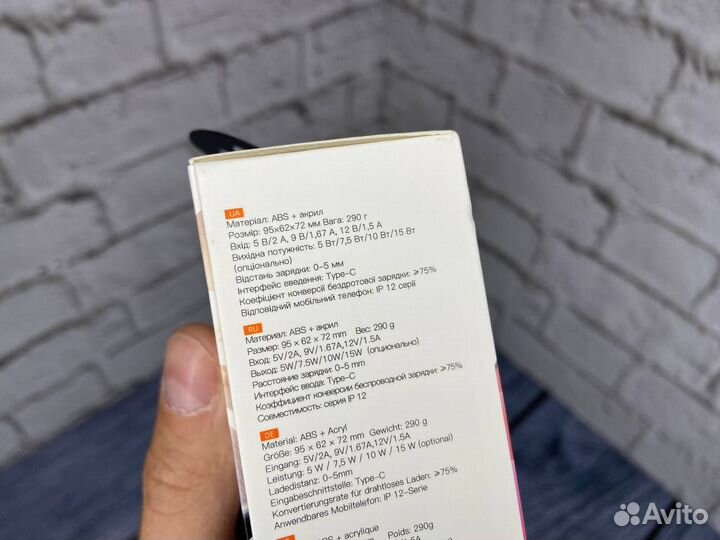 UA
Матеріал: ABS + акрил
Розмір: 95x62x72 мм Вага: 290 г
Вхід: 5 В/2 А, 9 В/1,67 А, 12 В/1,5 А
Вихідна потужність: 5 Вт/7,5 Вт/10 Вт/15 Вт
(опціонально)
Відстань зарядки: 0–5 мм
Інтерфейс введення: Type-C
Коефіцієнт конверсії бездротової зарядки: ⩾75%
Відповідний мобільний телефон: IP 12 серії
RU
Материал: ABS + акрил
Размер: 95 x 62 x 72 mm Вес: 290 g
Вход: 5V/2A, 9V/1.67A,12V/1.5A
Выход: 5W/7.5W/10W/15W (опционально)
Расстояние зарядки: 0–5 mm
Интерфейс ввода: Type-C
Коэффициент конверсии беспроводной зарядки: ⩾75%
Совместимость: серия IP 12
DE
Material: ABS + Acryl
Größe: 95 x 62 x 72 mm Gewicht: 290 g
Eingang: 5V/2A, 9V/1.67A,12V/1.5A
Leistung: 5 W / 7,5 W / 10 W / 15 W (optional)
Ladedistanz: 0–5mm
Eingabeschnittstelle: Type-C
Konvertierungsrate für drahtloses Laden: ⩾75%
Anwendbares Mobiltelefon: IP 12-Serie
: ABS + acrylique
x 72 mm Poids: 290g
Avito